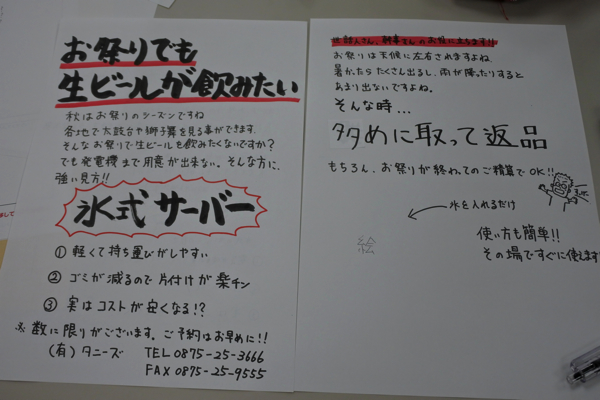 お祭りでも
生ビールが飲みたい
秋はお祭りのシーズンですね
各地で太鼓台や獅子舞を見る事ができます.
そんなお祭りで生ビールを飲みたくないですか?
でも発電機まで用意が出来ない。そんな方に、
強い見方!!
氷式サーバー
① 軽くて持ち運びがしやすい
② ゴミが減るので片付けが楽チン
③ 実はコストが安くなる!?
※ 数に限りがございます。ご予約はお早めに!!
(有) タニーズ TEL 0875-25-3666
FAX 0875-25-9555
世話人さん、幹事さんのお役に立ちます!!
お祭りは天候に左右されますよね.
暑かったらたくさん出るし、雨が降ったりすると
あまり出ないですよね。
そんな時...
多めに取って返品
もちろん、お祭りが終わってのご精算でOK!!
氷を入れるだけ
絵
使い方も簡単!!
その場ですぐに使えます